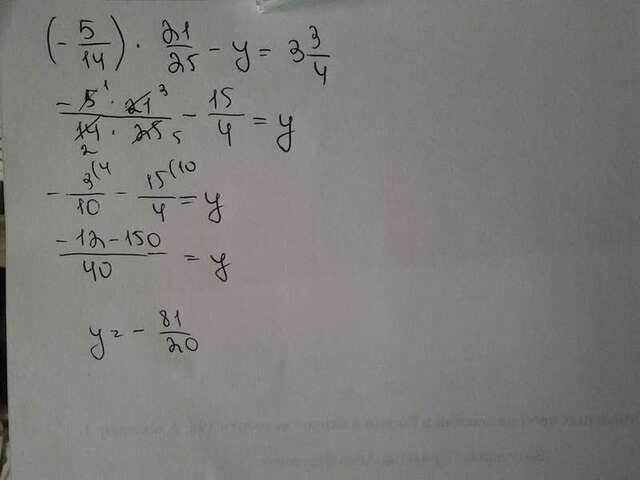 (-5/14) · 21/25 - y = 3 3/4
-5 1 · 21 3 / 14 2 · 25 5 - 15/4 = y
-3(4/10 - 15(10/4 = y
-12-150/40 = y
y = -81/20